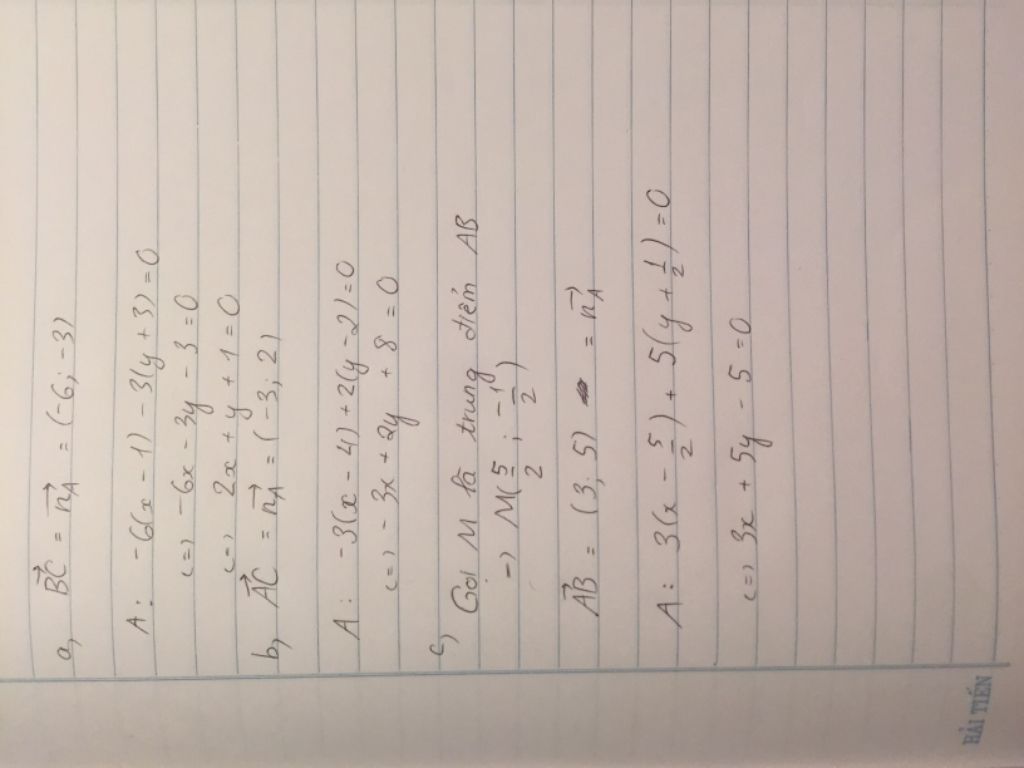 a, BC→ = n→A = (-6; -3)
A: -6(x - 1) - 3(y + 3) = 0
<=> -6x - 3y - 3 = 0
<=> 2x + y + 1 = 0
b, AC→ = n→A = (-3; 2)
A: -3(x - 4) + 2(y - 2) = 0
<=> - 3x + 2y + 8 = 0
c, Gọi M là trung điểm AB
-> M(5/2 ; -1/2)
AB→ = (3; 5) = n→A
A: 3(x - 5/2) + 5(y + 1/2) = 0
<=> 3x + 5y - 5 = 0
HẢI TIẾN